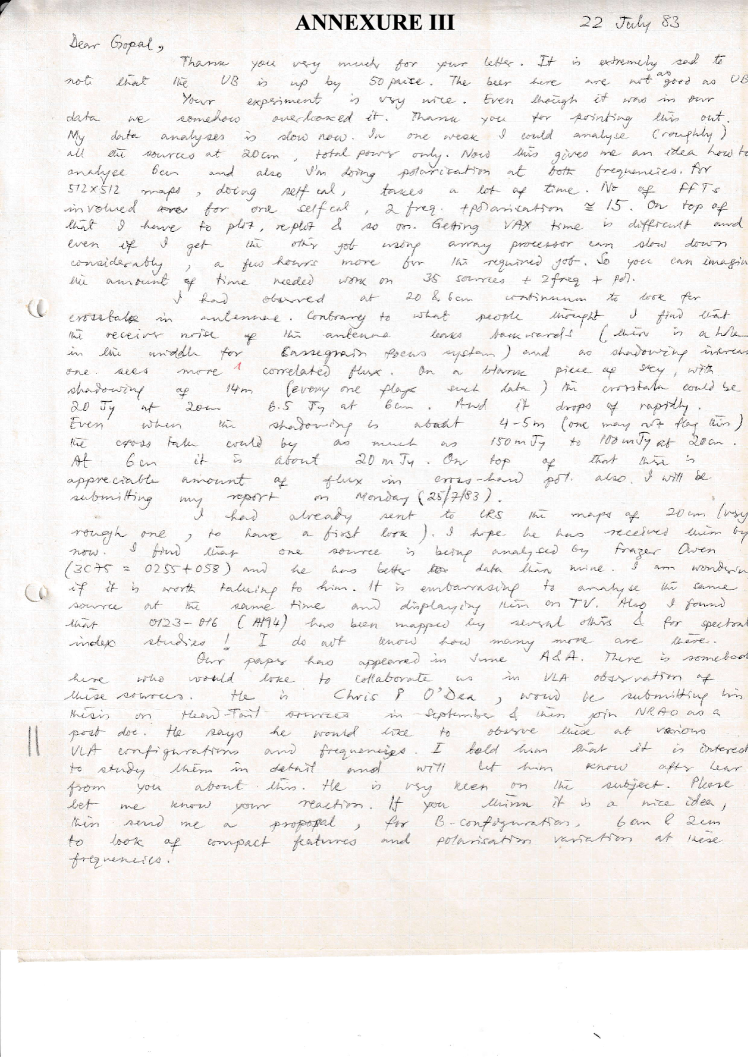 ANNEXURE III
22 July 83
Dear Gopal,
Thank you very much for your letter. It is extremely sad to
not that the UB is up by 50 paise. The beer here are not as good as UB
Your experiment is very nice. Even though it was in our
data we somehow overlooked it. Thank you for pointing this out.
My data analyses is slow now. In one week I could analyse (roughly)
all the sources at 20cm, total power only. Now this gives me an idea how to
analyse 6cm and also I'm doing polarisation at both frequencies. For
512x512 maps, doing self cal, takes a lot of time. No of FFTs
involved for one selfcal, 2 freq. + polarisation ≅ 15. On top of
that I have to plot, replot & so on. Getting VAX time is difficult and
even if I get the other job using array processor can slow down
considerably, a few hours more for the required job. So you can imagin
the amount of time needed work on 35 sources + 2freq + pol.
I had observed at 20 & 6cm continuum to look for
crosstalk in antennae. Contrary to what people thought I find that
the receiver noise of the antenna leaks backwards (there is a hole
in the middle for Cassegrain focus system) and as shadowing increas
one sees more correlated flux. On a blank piece of sky, with
shadowing of 14m (every one flags such data) the crosstalk could be
20 Jy at 20cm 6.5 Jy at 6cm. And it drops of rapidly.
Even when the shadowing is about 4-5m (one may not flag this)
the cross talk could by as much as 150mJy to 100mJy at 20cm.
At 6cm it is about 20mJy. On top of that there is
appreciable amount of flux in cross-hand pol. also. I will be
submitting my report on Monday (25/7/83).
I had already sent to the maps of 20cm (very
rough one, to have a first look). I hope he has received them by
now. I find that one source is being analysed by Frazer Owen
(3C75 = 0255+058) and he has better data than mine. I am wonderin
if it is worth talking to him. It is embarrasing to analyse the same
source at the same time and displaying them on TV. Also I found
that 0123-016 (A194) has been mapped by several others & for spectral
index studies! I do not know how many more are there.
Our paper has appeared in June A&A. There is somebod
here who would like to collaborate us in VLA observation of
these sources. He is Chris P O'Dea, would be submitting his
thesis on Head-Tail sources in September & then join NRAO as a
post doc. He says he would like to observe these at various
VLA configurations and frequencies. I told him that it is interest
to study them in detail and will let him know after hear
from you about this. He is very keen on the subject. Please
let me know your reaction. If you think it is a nice idea,
then send me a proposal, for B-configuration, 6cm & 2cm
to look of compact features and polarisation variation at these
frequencies.